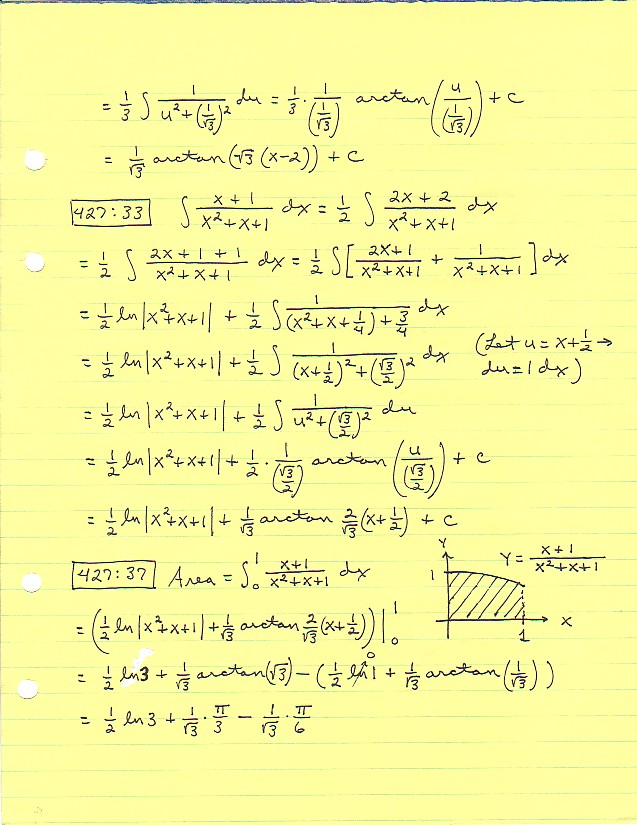 = 1/3 ∫ 1/(u² + (1/√3)²) du = 1/3 · 1/(1/√3) arctan(u/(1/√3)) + C
= 1/√3 arctan(√3 (x-2)) + C
427:33 ∫ (x+1)/(x²+x+1) dx = 1/2 ∫ (2x+2)/(x²+x+1) dx
= 1/2 ∫ (2x+1+1)/(x²+x+1) dx = 1/2 ∫ [(2x+1)/(x²+x+1) + 1/(x²+x+1)] dx
= 1/2 ln|x²+x+1| + 1/2 ∫ 1/((x²+x+1/4)+3/4) dx
= 1/2 ln|x²+x+1| + 1/2 ∫ 1/((x+1/2)²+(√3/2)²) dx (Let u = x+1/2 →
du = 1 dx)
= 1/2 ln|x²+x+1| + 1/2 ∫ 1/(u²+(√3/2)²) du
= 1/2 ln|x²+x+1| + 1/2 · 1/(√3/2) arctan(u/(√3/2)) + C
= 1/2 ln|x²+x+1| + 1/√3 arctan 2/√3 (x+1/2) + C
427:37 Area = ∫₀¹ (x+1)/(x²+x+1) dx
Y
Y = (x+1)/(x²+x+1)
1
1
X
= (1/2 ln|x²+x+1| + 1/√3 arctan 2/√3 (x+1/2))|₀¹
= 1/2 ln3 + 1/√3 arctan(√3) - (1/2 ln 1 0 + 1/√3 arctan(1/√3))
= 1/2 ln 3 + 1/√3 · π/3 - 1/√3 · π/6